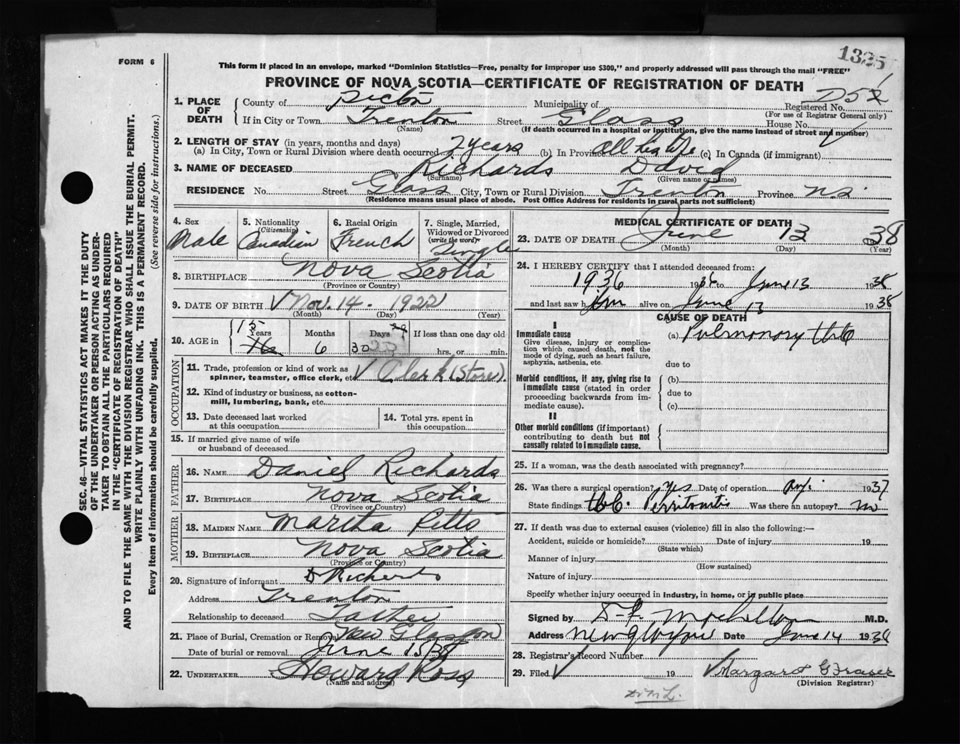 1325
FORM 6
This form if placed in an envelope, marked "Dominion Statistics—Free, penalty for improper use $300," and properly addressed will pass through the mail "FREE"
PROVINCE OF NOVA SCOTIA—CERTIFICATE OF REGISTRATION OF DEATH
1. PLACE OF DEATH County of Pictou Municipality of Registered No.
(For use of Registrar General only)
If in City or Town Trenton Street Glass House No.
(Name) (If death occurred in a hospital or institution, give the name instead of street and number)
2. LENGTH OF STAY (in years, months and days)
(a) In City, Town or Rural Division where death occurred 7 years (b) In Province all his life (c) In Canada (if immigrant)
3. NAME OF DECEASED Richards David
(Surname) (Given name or names)
RESIDENCE No. Street Glass City, Town or Rural Division Trenton Province N.S.
(Residence means usual place of abode. Post Office Address for residents in rural parts not sufficient)
4. Sex Male
5. Nationality (Citizenship) Canadian
6. Racial Origin French
7. Single, Married, Widowed or Divorced (write the word) Single
8. BIRTHPLACE Nova Scotia
(Province or Country)
9. DATE OF BIRTH Nov. 14 - 1922
(Month) (Day) (Year)
10. AGE in Years 15 16 Months 6 Days 29 30 If less than one day old hrs. or min.
OCCUPATION
11. Trade, profession or kind of work as spinner, teamster, office clerk, etc. Clerk (Store).
12. Kind of industry or business, as cotton-mill, lumbering, bank, etc.
13. Date deceased last worked at this occupation
14. Total yrs. spent in this occupation
15. If married give name of wife or husband of deceased
FATHER
16. NAME Daniel Richards
17. BIRTHPLACE Nova Scotia
(Province or Country)
MOTHER
18. MAIDEN NAME Martha Pitts
19. BIRTHPLACE Nova Scotia
(Province or Country)
20. Signature of informant D Richards
Address Trenton
Relationship to deceased Father
21. Place of Burial, Cremation or Removal New Glasgow
Date of burial or removal June 15 38
22. UNDERTAKER Howard Ross
(Name and address)
MEDICAL CERTIFICATE OF DEATH
23. DATE OF DEATH June 13 38
(Month) (Day) (Year)
24. I HEREBY CERTIFY that I attended deceased from:
1936 193 to June 13 1938
and last saw him alive on June 13 1938
CAUSE OF DEATH
I
Immediate cause
Give disease, injury or complication which caused death, not the mode of dying, such as heart failure, asphyxia, asthenia, etc
(a) Pulmonary tbc
due to
Morbid conditions, if any, giving rise to immediate cause (stated in order proceeding backwards from immediate cause).
(b)
due to
(c)
II
Other morbid conditions (if important) contributing to death but not causally related to immediate cause.
25. If a woman, was the death associated with pregnancy?
26. Was there a surgical operation? yes Date of operation 1937
State findings tbc Peritonitis Was there an autopsy? no
27. If death was due to external causes (violence) fill in also the following:—
Accident, suicide or homicide? Date of injury 19
(State which)
Manner of injury
(How sustained)
Nature of injury
Specify whether injury occurred in industry, in home, or in public place
Signed by M.D.
Address New Glasgow Date June 14 1938
28. Registrar's Record Number
29. Filed 19 Margaret G Fraser
(Division Registrar)
SEC. 46—VITAL STATISTICS ACT MAKES IT THE DUTY
OF THE UNDERTAKER OR PERSON ACTING AS UNDERTAKER
TO OBTAIN ALL THE PARTICULARS REQUIRED
IN THE "CERTIFICATE OF REGISTRATION OF DEATH"
AND TO FILE THE SAME WITH THE DIVISION REGISTRAR WHO SHALL ISSUE THE BURIAL PERMIT.
WRITE PLAINLY WITH UNFADING INK. THIS IS A PERMANENT RECORD.
Every item of information should be carefully supplied. (See reverse side for instructions.)